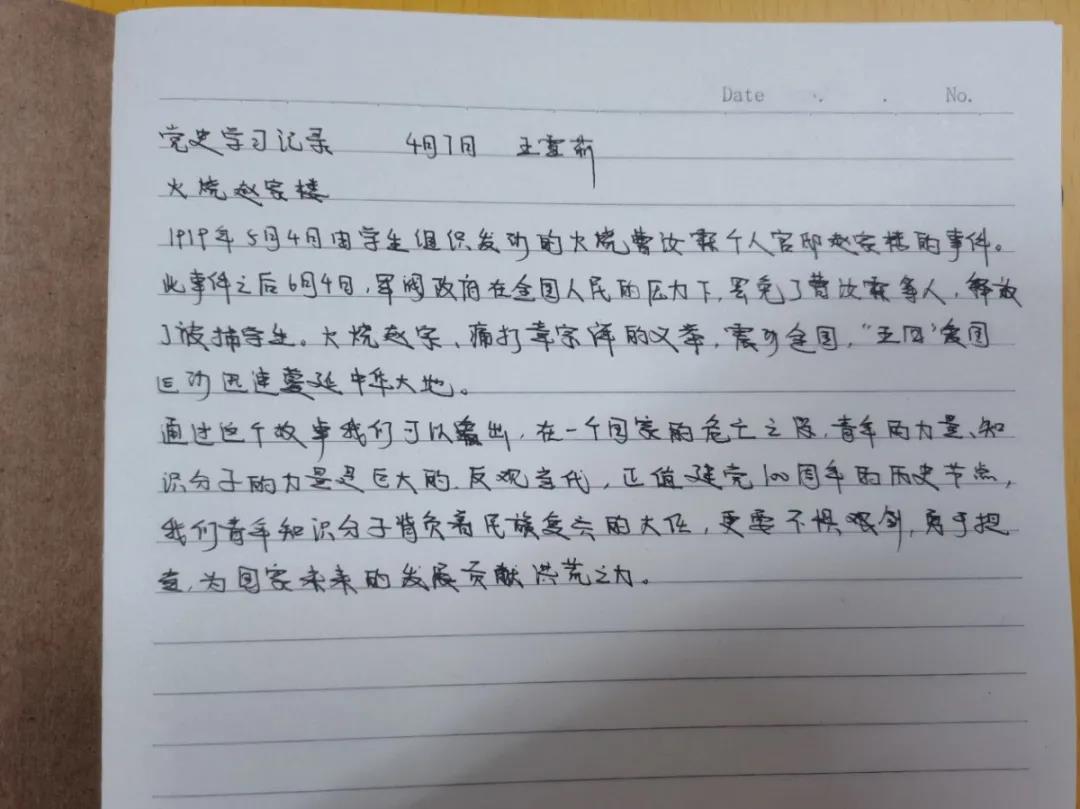 Date . . No.
党史学习记录 4月7日 王雪莉
火烧赵家楼
1919年5月4日由学生组织发动的火烧曹汝霖个人官邸赵家楼的事件。
此事件之后6月4日,军阀政府在全国人民的压力下,罢免了曹汝霖等人,释放
了被捕学生。火烧赵家、痛打章宗祥的义举,震动全国,“五四”爱国
运动迅速蔓延中华大地。
通过这个故事我们可以看出,在一个国家的危亡之际,青年的力量、知
识分子的力量是巨大的.反观当代,正值建党100周年的历史节点,
我们青年知识分子肩负着民族复兴的大任,更要不惧艰剑,勇于担
当,为国家未来的发展贡献洪荒之力。